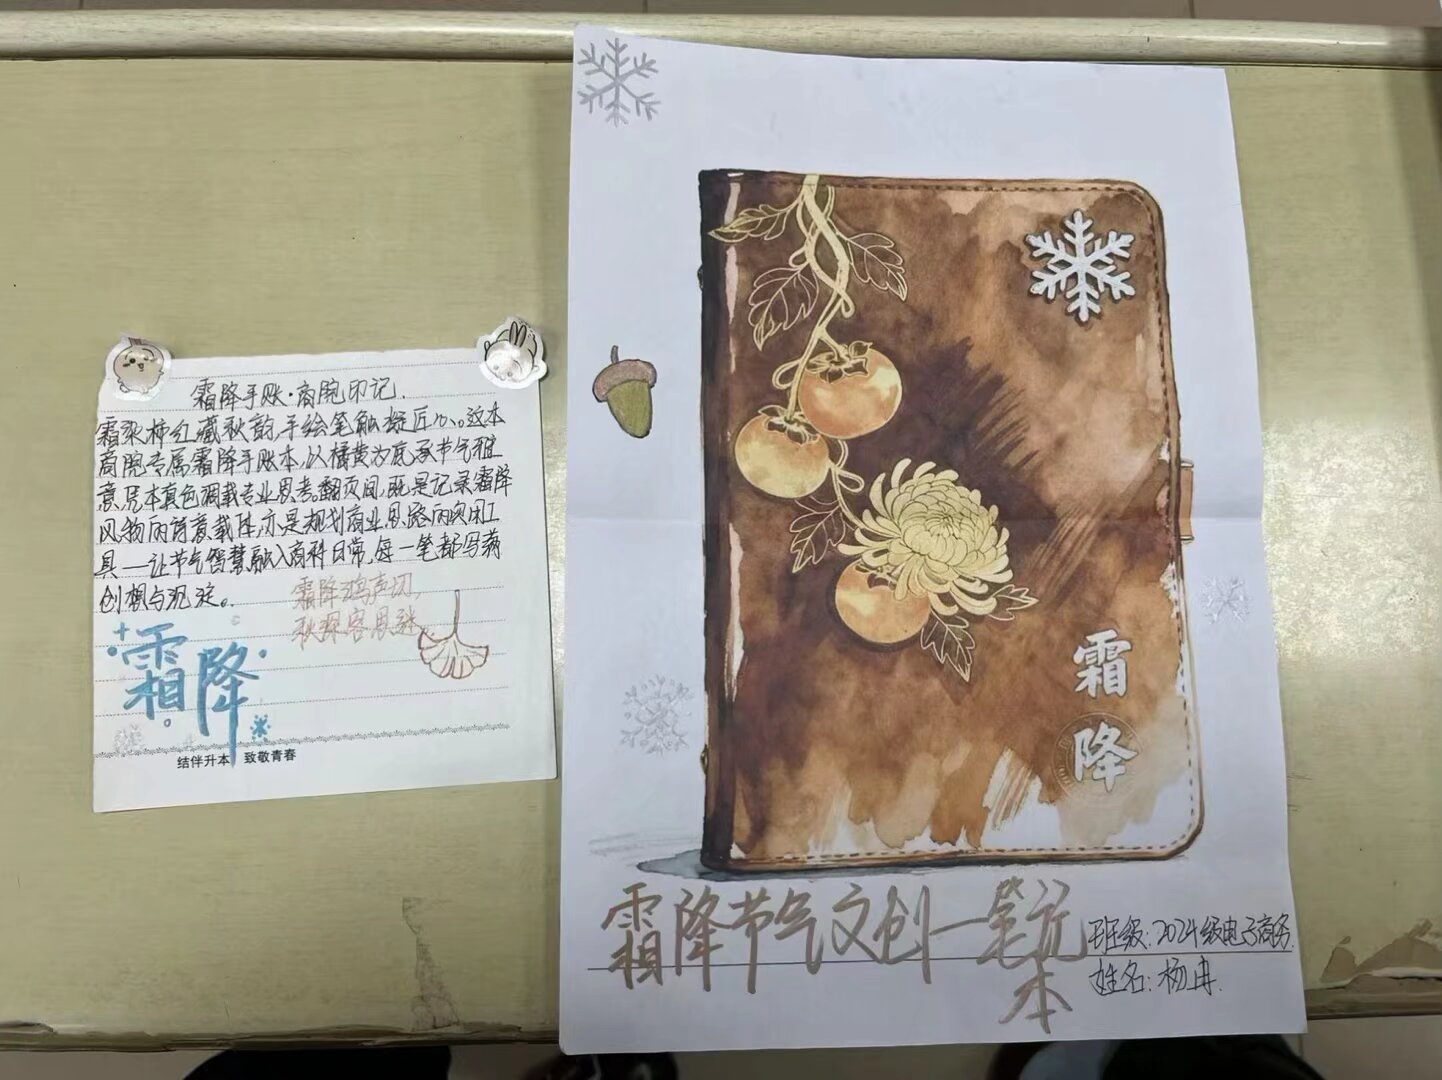 霜降手账·商院印记.
霜染柿红藏秋韵,手绘笔触凝匠心。这本
商院专属霜降手账本,以橘黄为底承节气雅
意,凭本真色调载专业思考。翻页间,既是记录霜降
风物的诗意载体,亦是规划商业思路的实用工
具—让节气智慧融入商科日常,每一笔都写满
创想与沉淀。
霜降鸿声切,
秋深客思迷
霜降
结伴升本 致敬青春
霜
降
霜降节气文创—笔记
本
班级:2024级电子商务
姓名:杨冉.